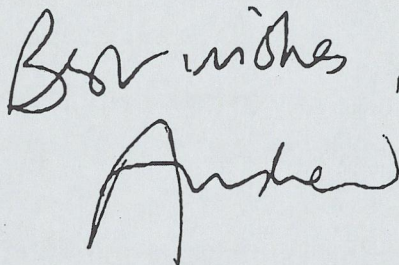 Best wishes,
Andrew